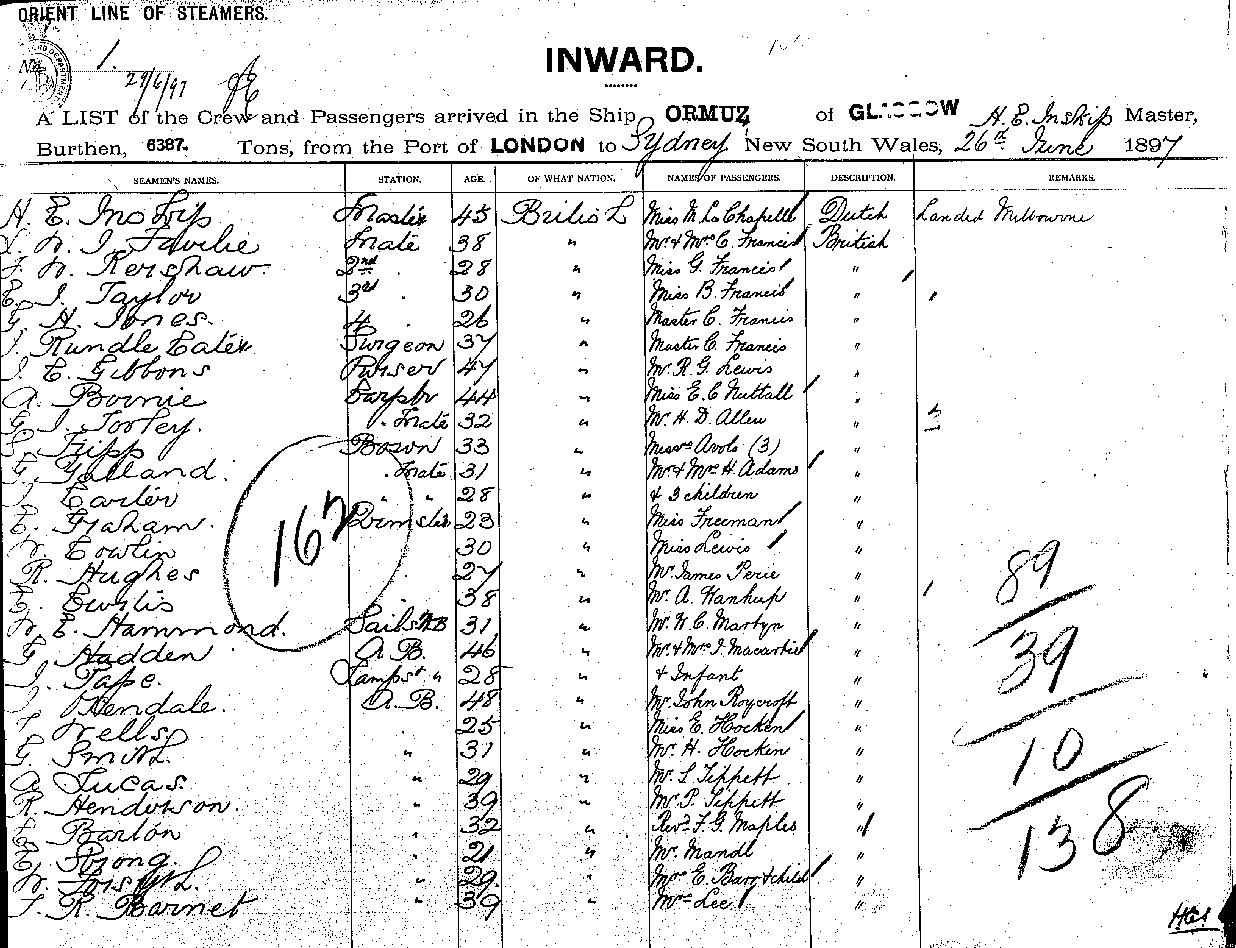 ORIENT LINE OF STEAMERS.
No. 1.
29/6/97
INWARD.
A LIST of the Crew and Passengers arrived in the Ship ORMUZ of GLASGOW H. E. Inskip Master,
Burthen, 6387. Tons, from the Port of LONDON to Sydney New South Wales, 26th June 1897
SEAMEN'S NAMES. STATION. AGE. OF WHAT NATION. NAMES OF PASSENGERS. DESCRIPTION. REMARKS.
H. E. Inskip Master 45 British Miss M. La Chapelle Dutch Landed Melbourne
W. J. Mate 38 " Mr & Mrs C. Francis British
W. Kershaw 2nd . 28 " Miss G. Francis "
E. J. Taylor 3rd . 30 " Miss B. Francis "
G. H. Jones. 4 . 26 " Master C. Francis "
J. Rundle Surgeon 37 " Master C. Francis "
J. E. Gibbons Purser 47 " Mr. R. G. Lewis "
A. Bownie Carptr 44 " Miss E. C. Nuttall "
G. J. Torley. . Mate 32 " Mr. H. D. Allen "
Tripp Bosun 33 " Misses Avots (3) "
G. Galland. . Mate 31 " Mr & Mrs H. Adams "
J. Carter " " 28 " & 3 children "
E. Graham. 23 " Miss Freeman "
W. Cowlin 30 " Miss Lewis "
R. Hughes 27 " Mr. James Perie "
E. Curtis 38 " Mr. A. Hankup "
W. E. Hammond. Sails AB 31 " Mr. W. C. Martyn "
G. Hadden A.B. 46 " Mr & Mrs J. Macartie "
J. Tape. Lamps " 28 " & Infant "
J. Kendale. A.B. 48 " Mr. John Roycroft "
Wells . 25 " Miss E. Hocken "
G. Smith " 31 " Mr. H. Hocken "
A. Lucas. " 29 " Mr. S. Tippett "
R. Henderson. " 39 " Mr. P. Tippett "
Barton " 32 " Revd. F. G. Maples "
Strong. " 21 " Mr. Mandl "
W. Forsyth. " 29 " Mrs E. Barr & child "
F. R. Barnet " 39 " Mrs Lee "
167
89
39
10
138